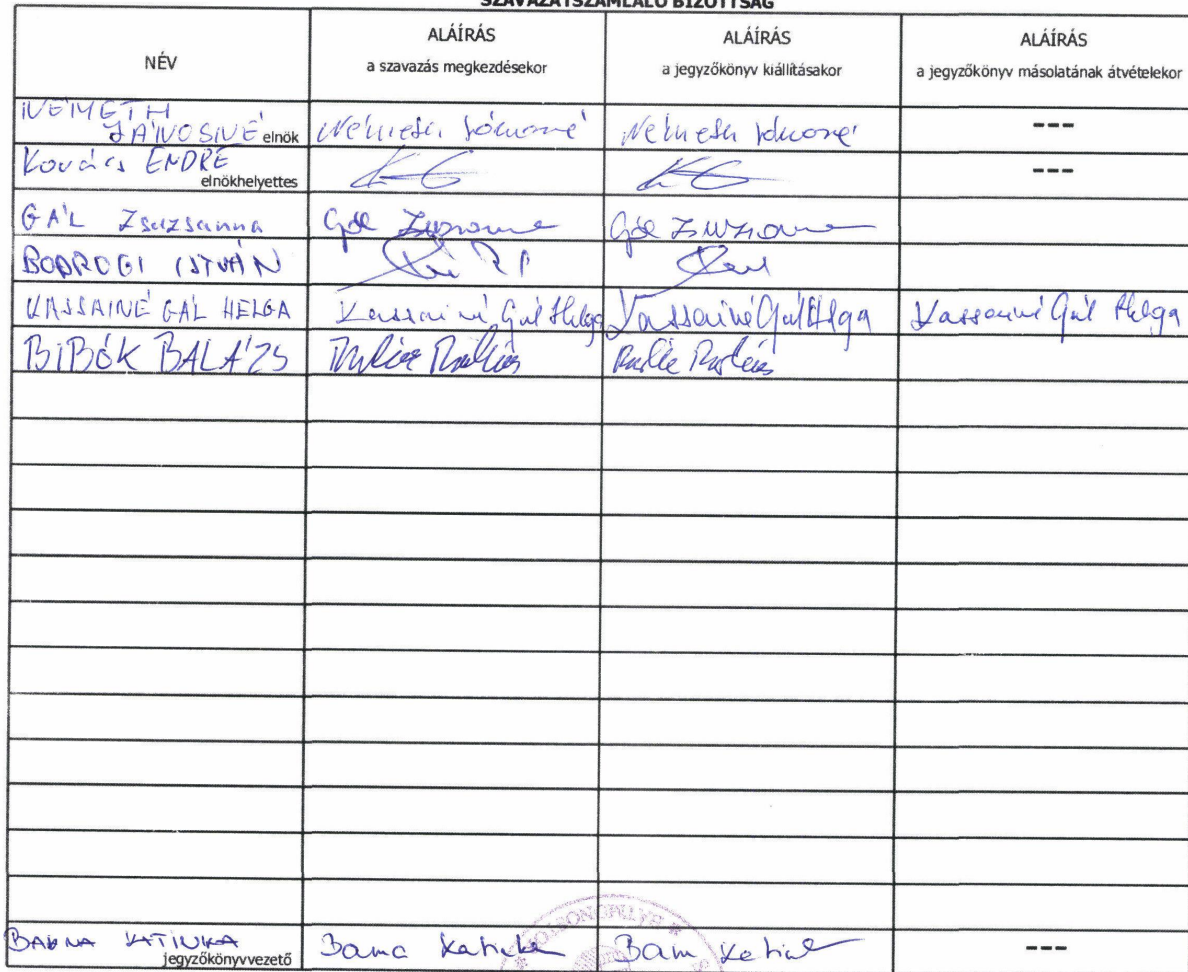 SZAVAZATSZÁMLÁLÓ BIZOTTSÁG
NÉV
ALÁÍRÁS
a szavazás megkezdésekor
ALÁÍRÁS
a jegyzőkönyv kiállításakor
ALÁÍRÁS
a jegyzőkönyv másolatának átvételekor
NÉMETH
JÁNOSNÉ elnök Németh Jánosné Németh Jánosné ---
Kovács ENDRE
elnökhelyettes ---
GÁL Zsuzsanna Gál Zsuzsanna Gál Zsuzsanna
BODROGI ISTVÁN
KASSAINÉ GÁL HELGA Kassainé Gál Helga Kassainé Gál Helga Kassainé Gál Helga
BIBÓK BALÁZS
KATINKA
jegyzőkönyvvezető ---